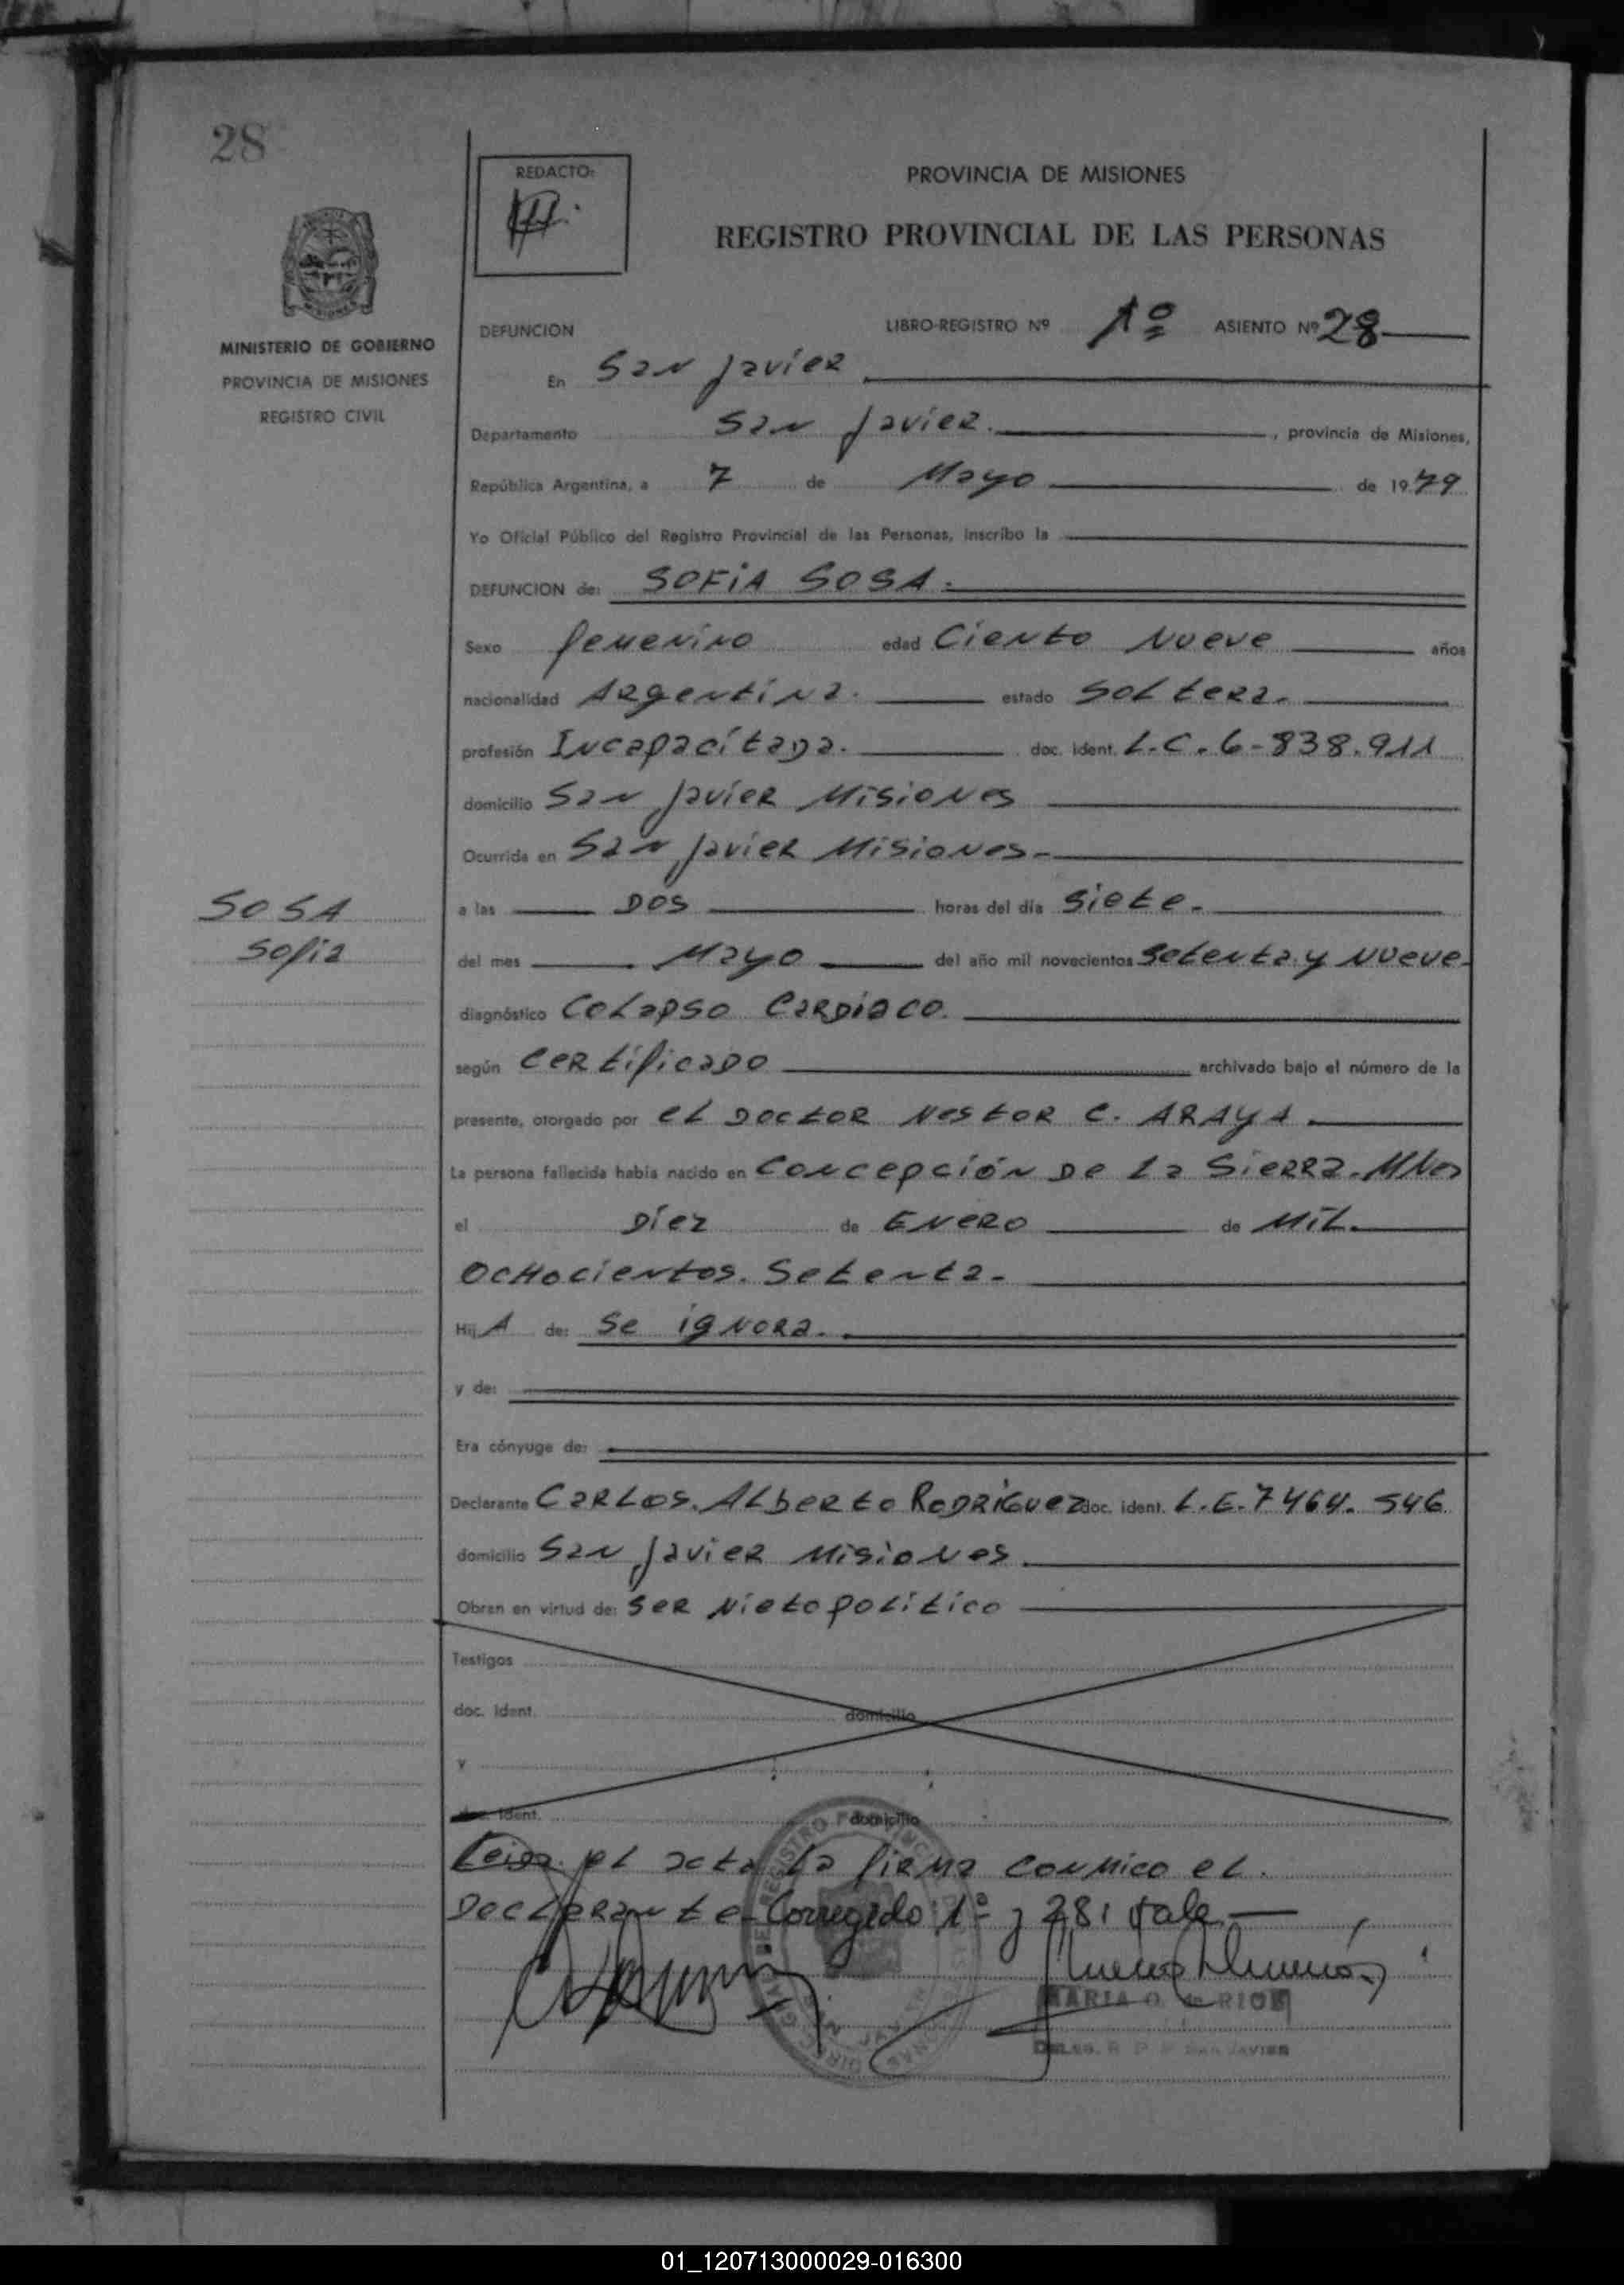 28
REDACTO:
PROVINCIA DE MISIONES
REGISTRO PROVINCIAL DE LAS PERSONAS
MINISTERIO DE GOBIERNO
PROVINCIA DE MISIONES
REGISTRO CIVIL
DEFUNCION LIBRO-REGISTRO Nº 1º ASIENTO Nº 28
En San Javier
Departamento San Javier. , provincia de Misiones,
República Argentina, a 7 de Mayo de 1979
Yo Oficial Público del Registro Provincial de las Personas, inscribo la
DEFUNCION de: SOFIA SOSA.
Sexo femenino edad Ciento Nueve años
nacionalidad Argentina. estado Soltera.
profesión Incapacitada. doc. ident. L.C. 6-838.911
domicilio San Javier Misiones
Ocurrida en San Javier Misiones-
SOSA
Sofia
a las DOS horas del día Siete-
del mes Mayo del año mil novecientos Setenta y Nueve-
diagnóstico Colapso Cardiaco.
según Certificado archivado bajo el número de la
presente, otorgado por el Doctor Nestor C. ARAYA.
La persona fallecida había nacido en Concepción De La Sierra. MNes
el Diez de Enero de Mil.
Ochocientos. Setenta-
Hij A de: Se ignora.
y de:
Era cónyuge de:
Declarante Carlos. Alberto Rodriguez doc. ident. L.E. 7464. 546
domicilio San Javier Misiones.
Obran en virtud de: Ser Nieto politico
Testigos
doc. ident. domicilio
y
doc. ident. domicilio
Leida el acta La firma conmico el.
Declarante- Corregido: 1º y 28: Vale.
MARIA O. de RIOS
DELEG. R. P. P. SAN JAVIER
01_120713000029-016300